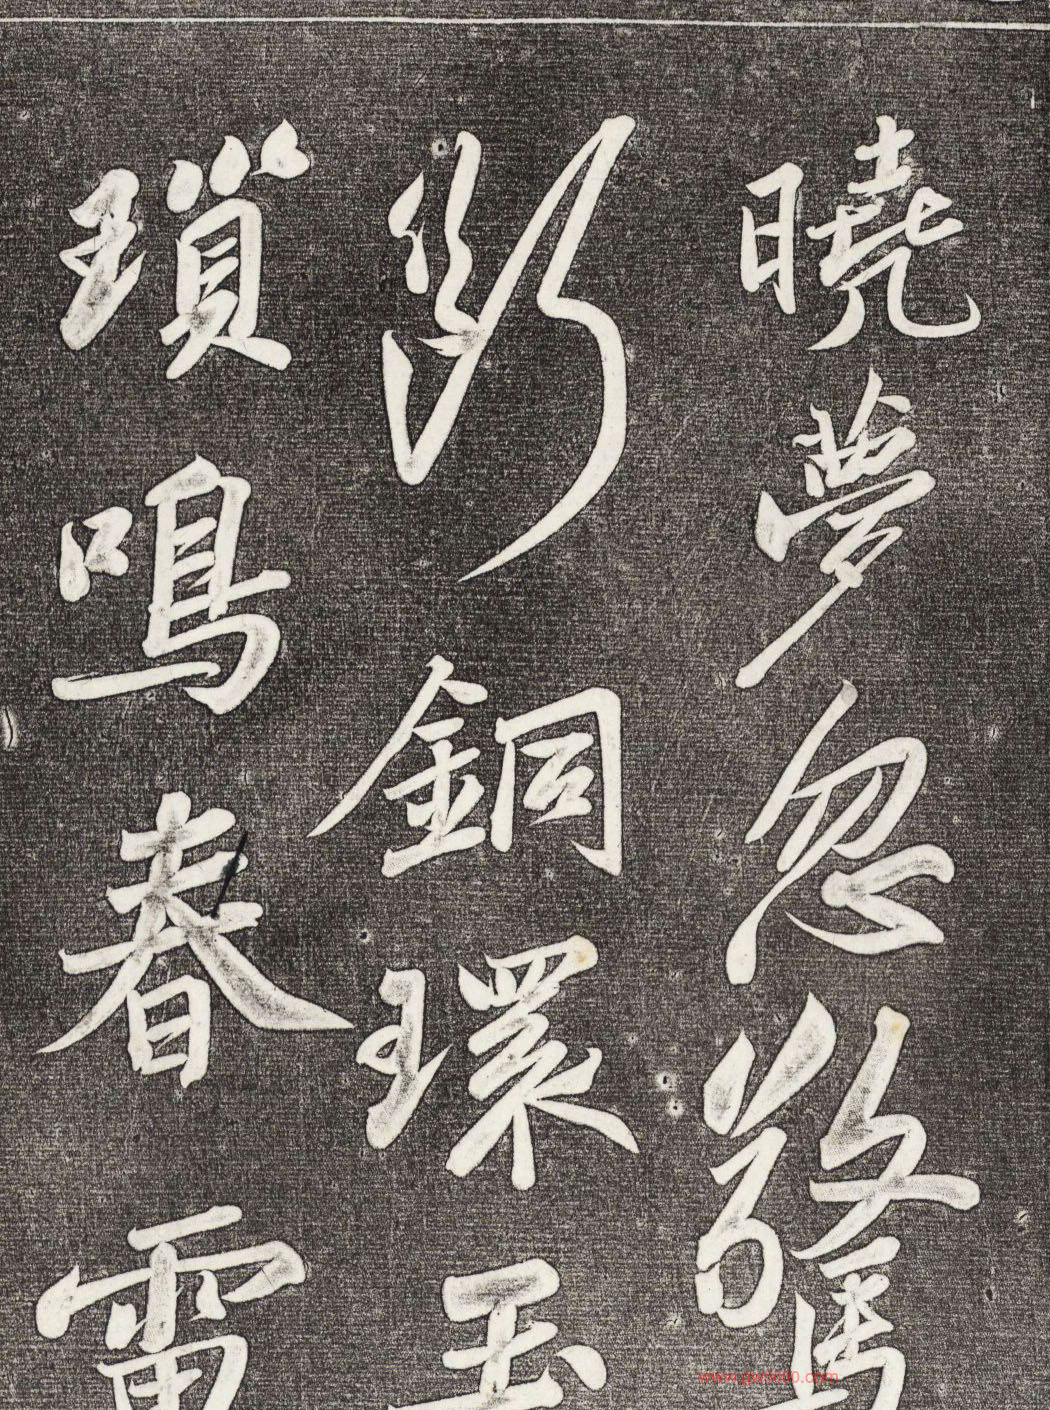 曉夢忽驚
斷銅環玉
瑣鳴春雷
www.gws000.com